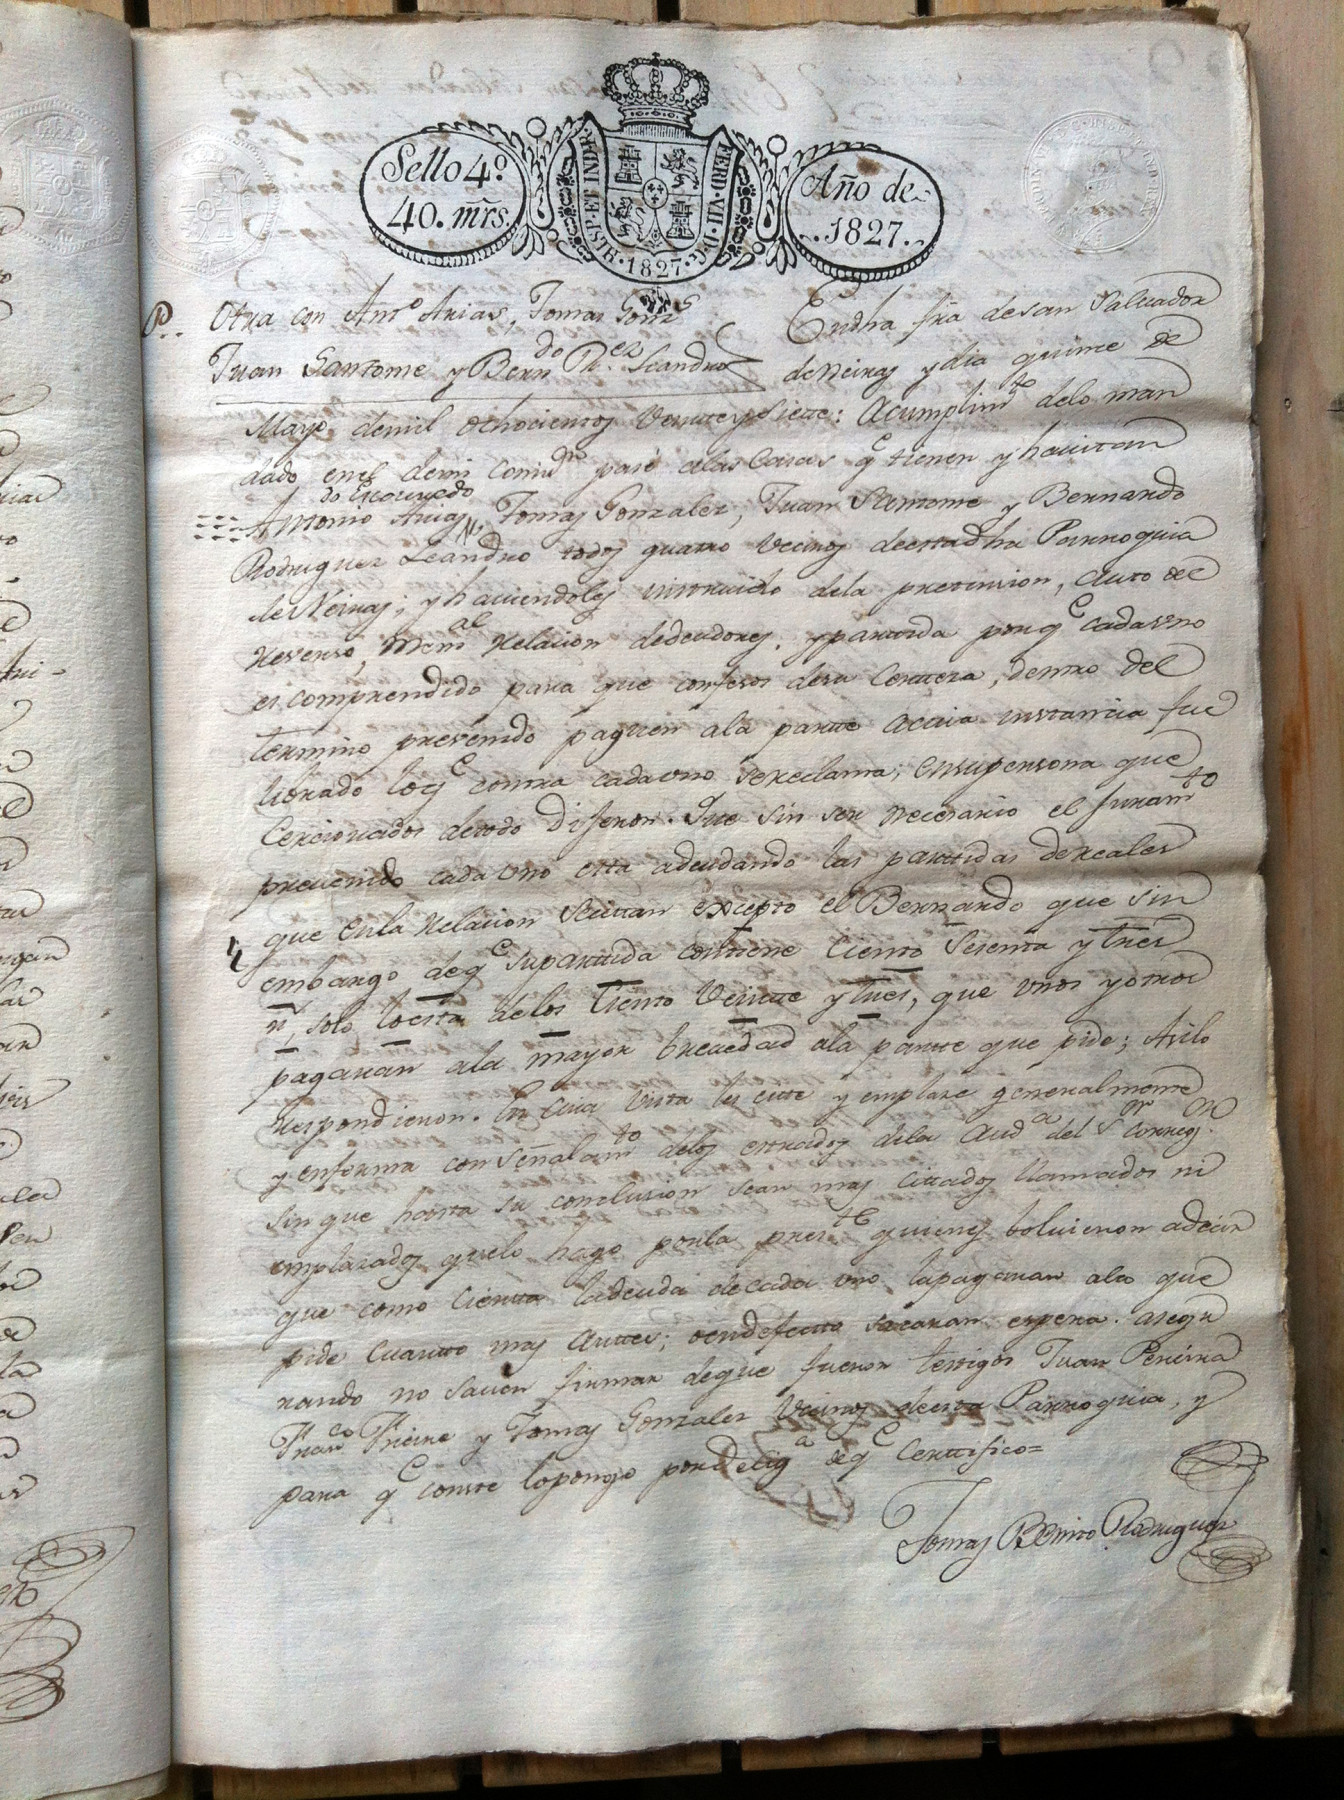 Sello 4º
40. mrs.
HISP. ET IND. R.
FERD. VII. D. G.
1827
Año de
1827.
P. Otra con Antº Arias, Tomas Gonzs
Juan Santome y Berndo Rez Leandro
En dha fra de san Salvador
de Neiras y dia quince de
Mayo de mil ochocientos Veinte y siette: A cumplimto delo man
dado en el de mi pase alas Casas qe tienen y havitan
Antonio Arias, Tomas Gonzalez, Juan Stomome y Bernardo
Rodriguez Leandro todos quatro Vecinos de esta dha Parroquia
de Neiras; y haviendoles instruido dela pretension, auto del
reverso, meml relacion de deudores, y partida porqe cada uno
es comprendido para que confesos de su Certteza, dentro del
termino prevenido paguen ala partte a cuia instancia fue
librado lo qe contra cada uno se reclama; en su persona que
Cerciorados de todo Dijeron. Que sin ser necesario el Juramto
prevenido cada uno esta adeudando las parttidas de reales
que en la relacion se cittan excepto el Bernardo que sin
embargo de qe su parttida conttiene Ciento Sesenta y tres
rs, solo lo esta de los Ciento Veintte y tres, que unos y otros
pagaran ala mayor brevedad ala partte que pide; Asilo
respondieron. En cuia Vista les citte y emplaze generalmente
y en forma con Señalamto delos estrados dela Auda del Sr Corregr.
sin que hasta su conclusion sean mas cittados llamados ni
emplazados que lo hago por la preste quienes bolvieron a decir
que como cierta la deuda de cada uno la pagaran alo que
pide cuantto mas anttes; o en defectto sacaran espera. asegu
rando no saven firmar de que fueron testigos Juan Pereira
Franco Freire y Tomas Gonzalez Vecinos de esta Parroquia, y
para qe conste lo pongo por diliga de qe Certtifico=
Tomas Benito Rodriguez